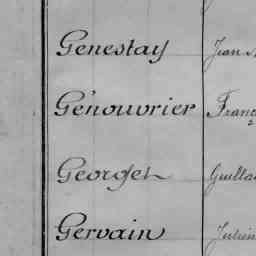 Genestay Jean
Génouvrier Franç
Georget Guilla
Gervain Julien